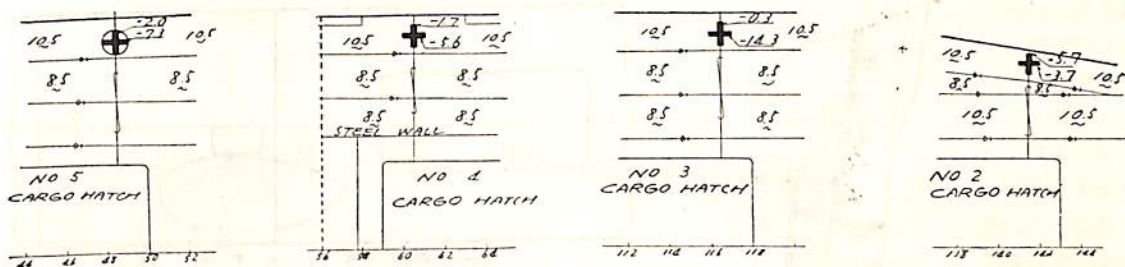 -2.0
-7.3
10.5 10.5
8.5 8.5
NO 5
CARGO HATCH
46 48 50 52
-1.7
-5.6
10.5 10.5
8.5 8.5
8.5 8.5
STEEL WALL
NO 4
CARGO HATCH
56 58 60 62 64
-0.3
-14.3
10.5 10.5
8.5 8.5
8.5 8.5
NO 3
CARGO HATCH
112 114 116 118
-5.7
-3.7
10.5 10.5
8.5 8.5
10.5 10.5
NO 2
CARGO HATCH
138 140 142 144